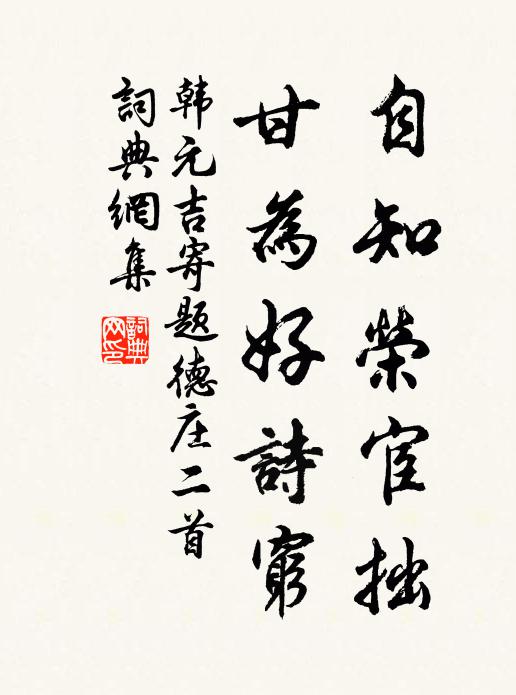 自知榮宦拙
甘為好詩窮
韩元吉寄题德庄二首
詞典網集
詞典網印